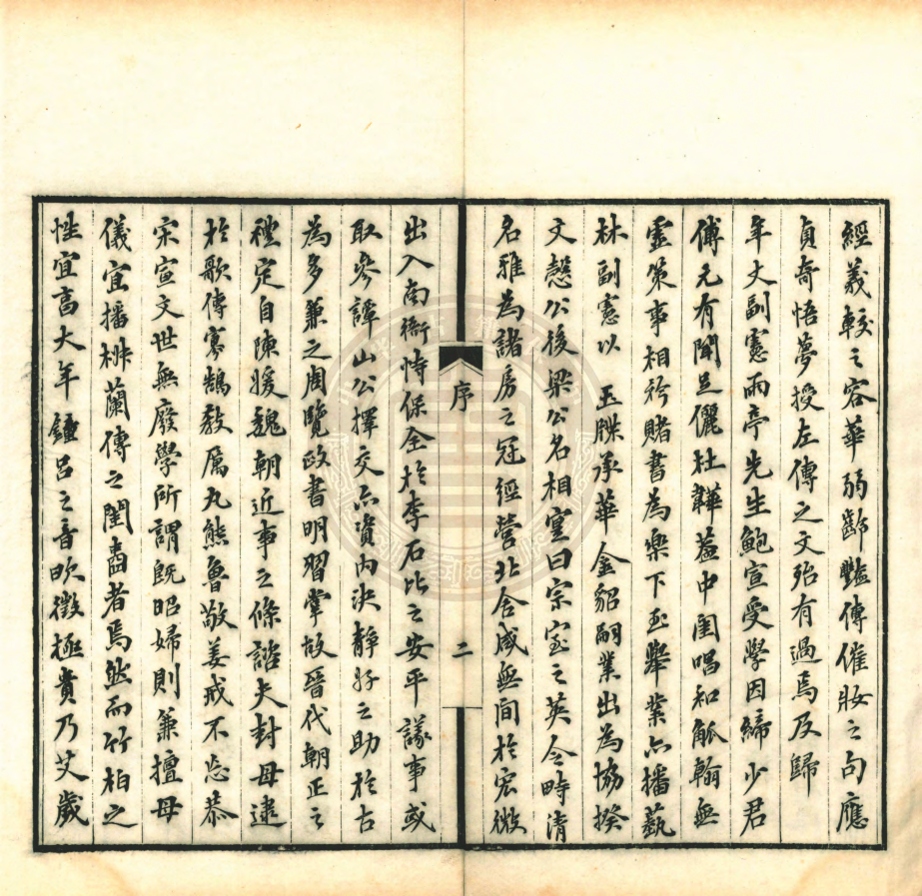 經義較之容華弱齡豔傳催妝之句應
貞奇悟夢授左傳之文殆有過焉及歸
年丈副憲雨亭先生鮑宣受學因締少君
傅元有聞足儷杜韡蓋中閨唱和觚翰無
靈策事相矜賭書為樂下至舉業亦播藝
林副憲以 玉牒承華 金貂嗣業出為協揆
文愨公後梁公名相寔曰宗室之英令時清
名雅為諸房之冠經營北舍咸無間於宏微
序
二
出入南衙恃保全於李石比之安平議事或
取參譚山公擇交亦資內決靜好之助於古
為多兼之周覽政書明習掌故晉代朝正之
禮定自陳媛魏朝近事之條諮夫封母逮
於歌傳寡鵠教厲丸熊魯敬姜戒不忘恭
宋宣文世無廢學所謂既昭婦則兼擅母
儀宜播棻蘭傳之閨壼者焉然而竹柏之
性宜富大年鍾呂之音昳徵極貴乃艾歲